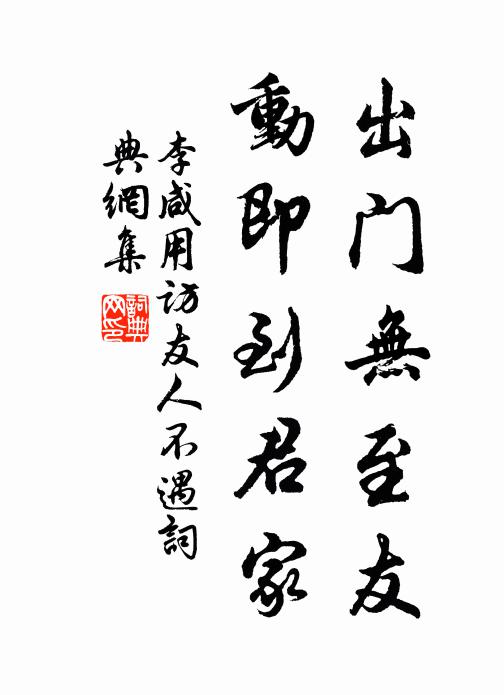 出门無至友
動即到君家
李咸用访友人不遇詞
典網集
詞典
网印